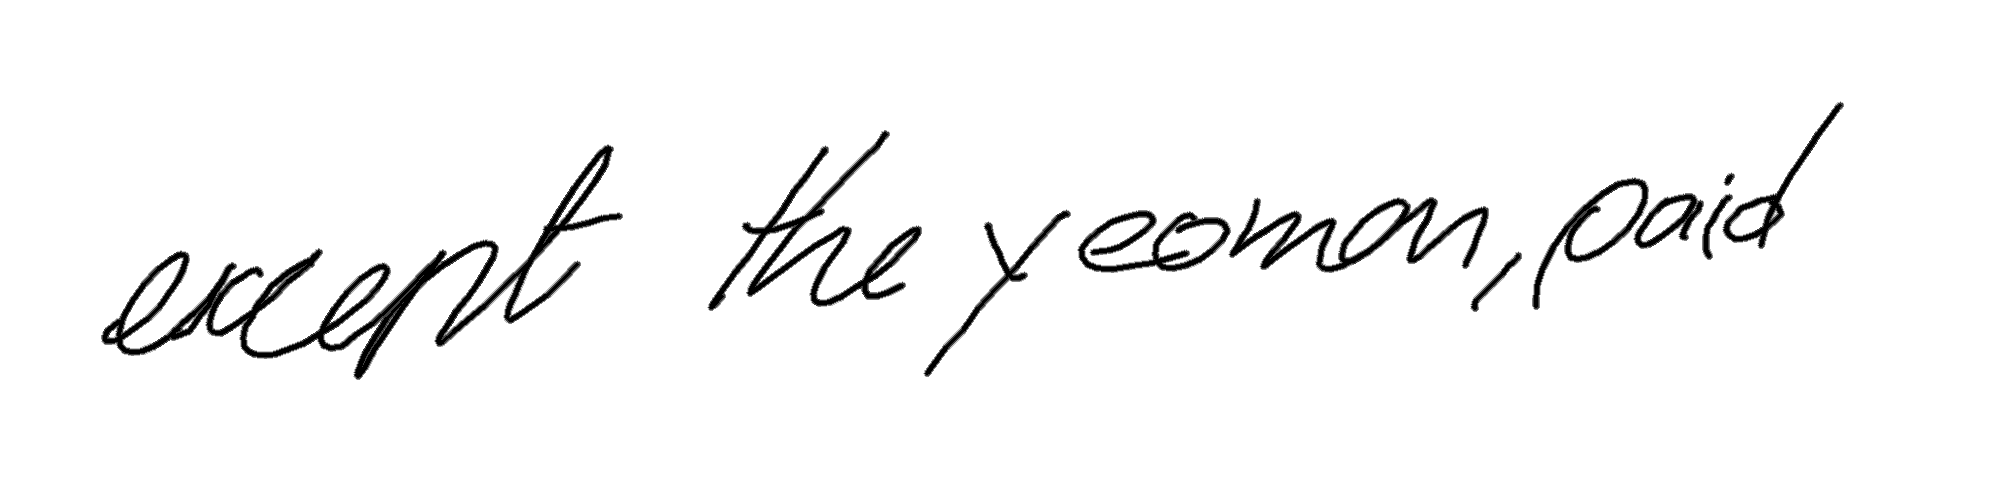 except the yeoman, paid